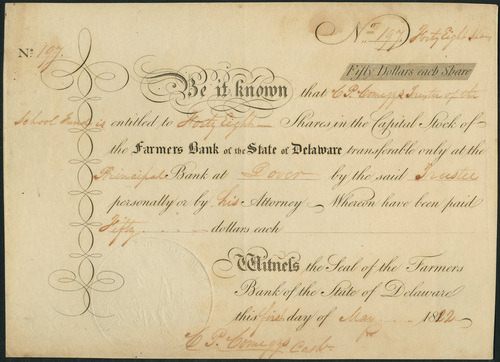 No 197 Forty Eight Shares
No 197
Fifty Dollars each Share
Be it known that C. P. Comegys Trustee of the
School Fund is entitled to Forty Eight Shares in the Capital Stock of
the Farmers Bank of the State of Delaware transferable only at the
Principal Bank at Dover by the said Trustee
personally or by his Attorney Whereon have been paid
Fifty dollars each
Witness the Seal of the Farmers
Bank of the State of Delaware
this first day of May 1822
C. P. Comegys Cashr